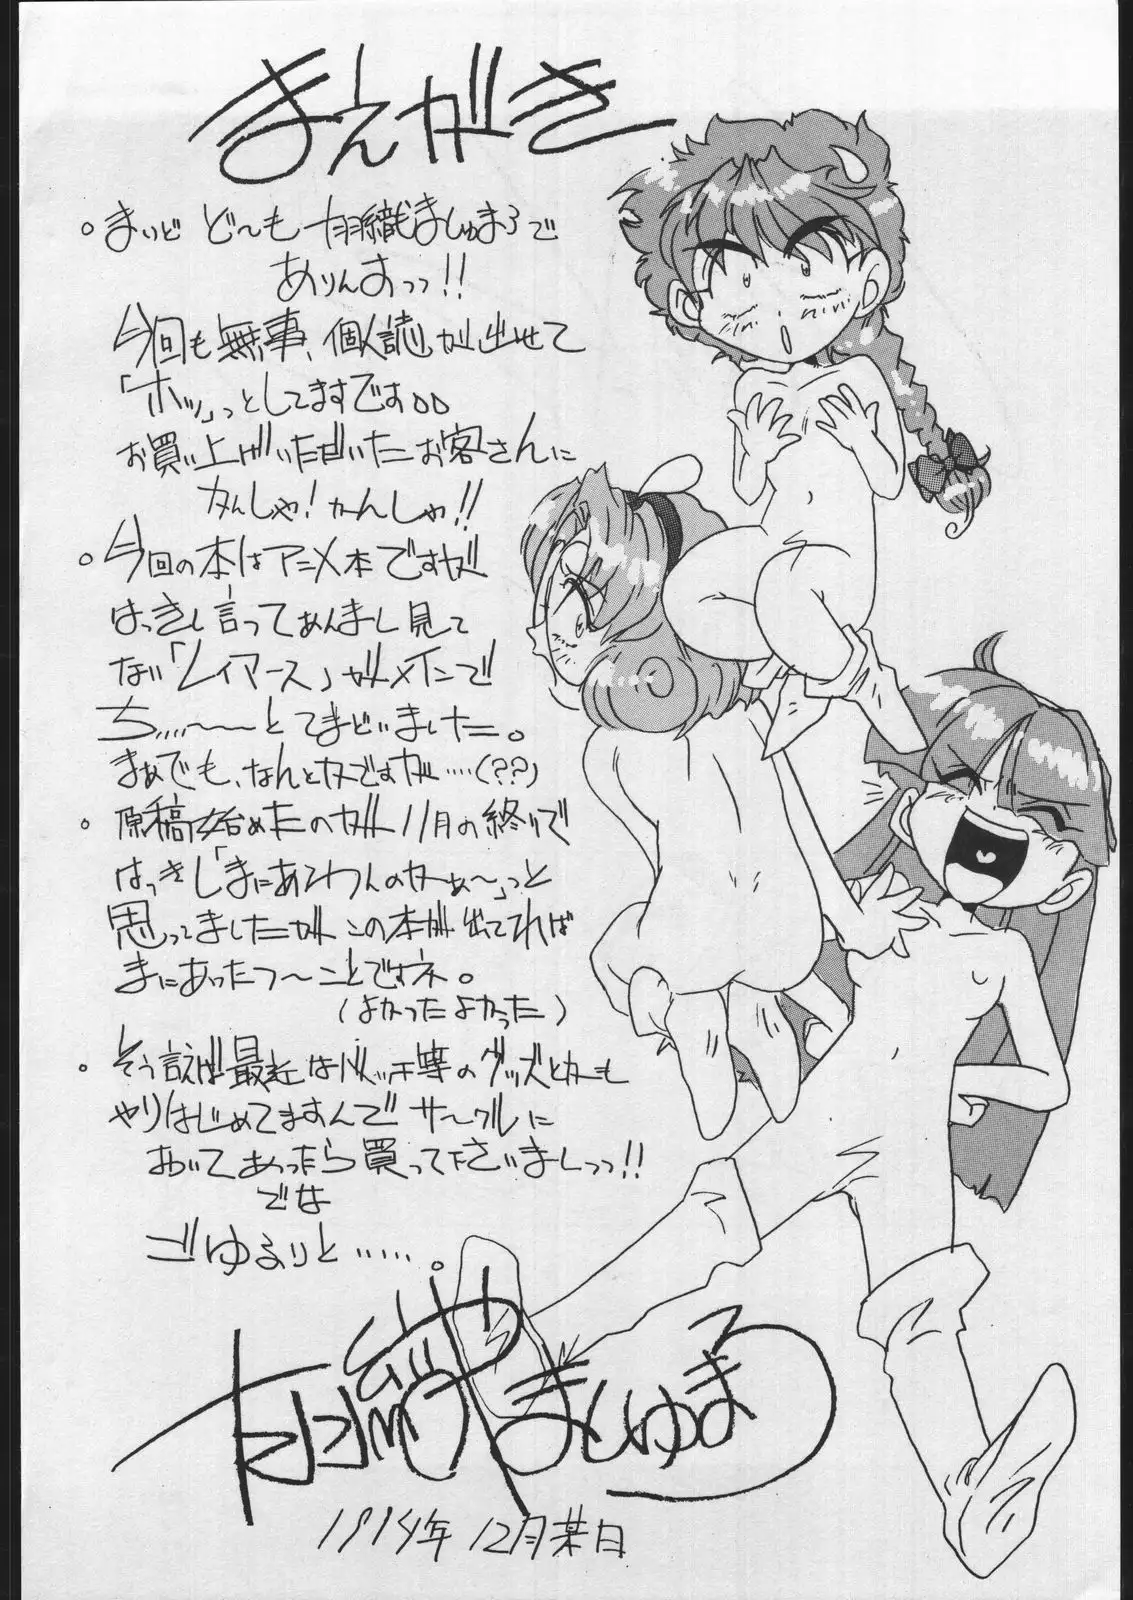 まえがき
。まいど ど〜も 羽織ましゅまろで
ありんすっっ!!
今回も無事、個人誌が出せて
「ホッ」っとしてますです。。
お買い上げいただいたお客さんに
かんしゃ!かんしゃ!!
。今回の本はアニメ本ですが
はっきし言ってあんまし見て
ない「レイアース」がメインで
ち、、、、〜〜とてまどいました。
まぁでも、なんとかですが‥‥(??)
。原稿始めたのが11月の終りで
はっきし「まにあうわんのかぁ〜」っと
思ってましたが この本が出てれば
まにあったつ〜ことですネ。
(よかったよかった)
。そう言えば最近はバッチ等のグッズとかも
やりはじめてますんでサークルに
おいてあったら買って下さいましっっ!!
でわ
ごゆるりと‥‥‥。
羽織ましゅまろ
1994年 12月某日